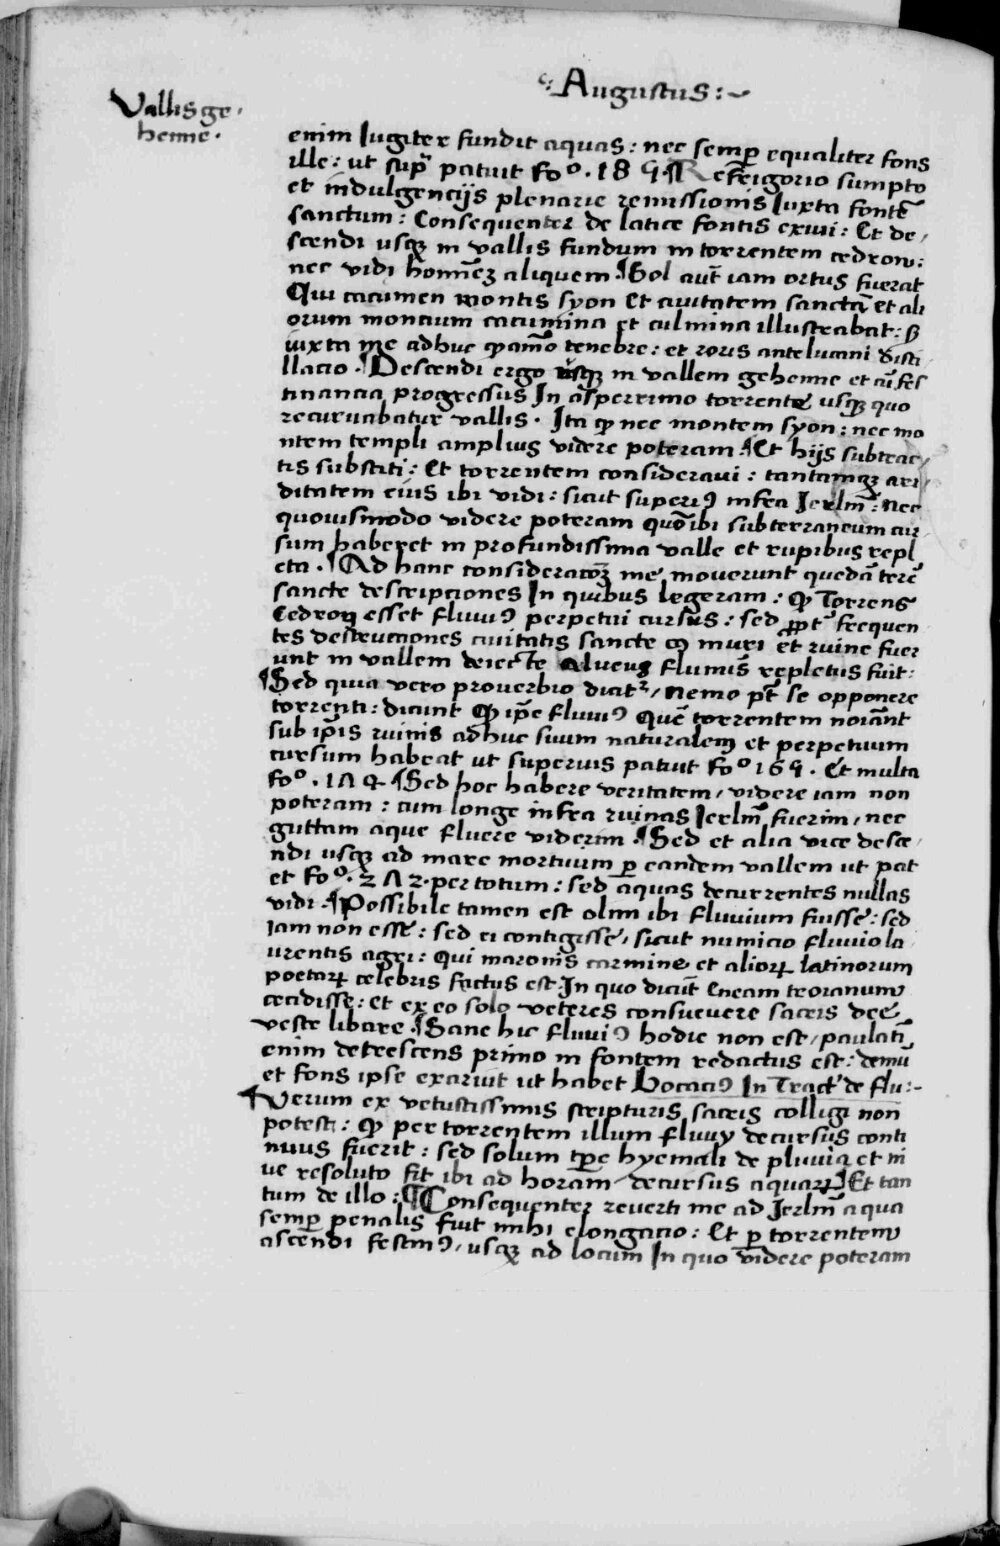 Augustus:~
Vallis ge
henne.
enim Iugiter fundit aquas: nec semꝑ equaliter fons
ille: ut supᷓ patuit Foº. 189. ¶ Refrigerio sumpto
et indulgencijs plenarie remissionis Iuxta fontē
sanctum: Consequenter de latice fontis exiui: Et de/
scendi usqꝫ in vallis fundum in torrentem cedron:
nec vidi hominēꝫ aliquem ¶ Sol aut̄ iam ortus fuerat
Qui cacumen montis syon Et ciuitatem sanctā et ali
orum montium cacumina et culmina illustrabat: sꝫ
iuxta me adhuc tenebre: et roris antelucani disti
llacio. ¶ Descendi ergo usqꝫ in vallem gehenne et cū fes
tinancia progressus In asperrimo torrente usqꝫ quo
recuruabatur vallis. Ita ꝙ nec montem syon: nec mo
ntem templi amplius videre poteram. ¶ Et hijs subtrac/
tis substiti: Et torrentem consideraui: tantamqꝫ ari/
ditatem eius ibi vidi: sicut superiꝰ infra Ierlm̄: nec
quouismodo videre poteram quō ibi subterraneum cur
sum haberet in profundissima valle et rupibus repl
eta. ¶ Ad hanc consideracōꝫ me mouerunt quedā terē
sancte descripciones In quibus legeram: ꝙ Torrens
Cedron esset fluuiꝰ perpetui cursus: sed ꝓpt frequen
tes destructiones ciuitatis sancte ꝙ muri et ruine fuer
unt in vallem deiecte Alueus fluminis repletus fuit:
¶ Sed quia vero prouerbio dicit᷑ / nemo pt̄ se opponere
torrenti: dicunt ꝙ ip̄e fluuiꝰ quē torrentem noīant
sub ip̄is ruinis adhuc suum naturalem et perpetuum
cursum habeat ut superius patuit Foº 169. Et multa
Foº. 174 ¶ Sed hoc habere veritatem / videre iam non
poteram: cum longe infra ruinas Ierlm̄ fuerim / nec
guttam aque fluere viderim. ¶ Sed et alia vice desce/
ndi usqꝫ ad mare mortuum ꝑ eandem vallem ut pat
et Foº. 272. per totum: sed aquas decurrentes nullas
vidi. ¶ Possibile tamen est olim ibi fluuium fuisse: sed
Iam non esse: sed ei contigisse / sicut numicio fluuio la
urentis agri: qui maronis carmine et alioꝝ latinorum
poetaꝝ celebris factus est. In quo dicūt Eneam troianum
cecidisse: et ex eo solo veteres consueuere sacris dee
veste libare. ¶ Sane hic fluuiꝰ hodie non est / paulatī
enim decrescens primo in fontem redactus est: demū
et fons ipse exaruit ut habet Bocaciꝰ In Tract de flu:-
¶ Verum ex vetustissimis scripturis sacris colligi non
potest: ꝙ per torrentem illum fluuy decursus conti
nuus fuerit: sed solum tp̄e hyemali de pluuia et ni
ue resoluto fit ibi ad horam decursus aquaꝝ ¶ Et tan
tum de illo: ¶ Consequenter reuerti me ad Ierlm̄ a qua
semꝑ penalis fuit mihi elongacio: Et ꝑ torrentem
ascendi festinꝰ / usqꝫ ad locum In quo videre poteram